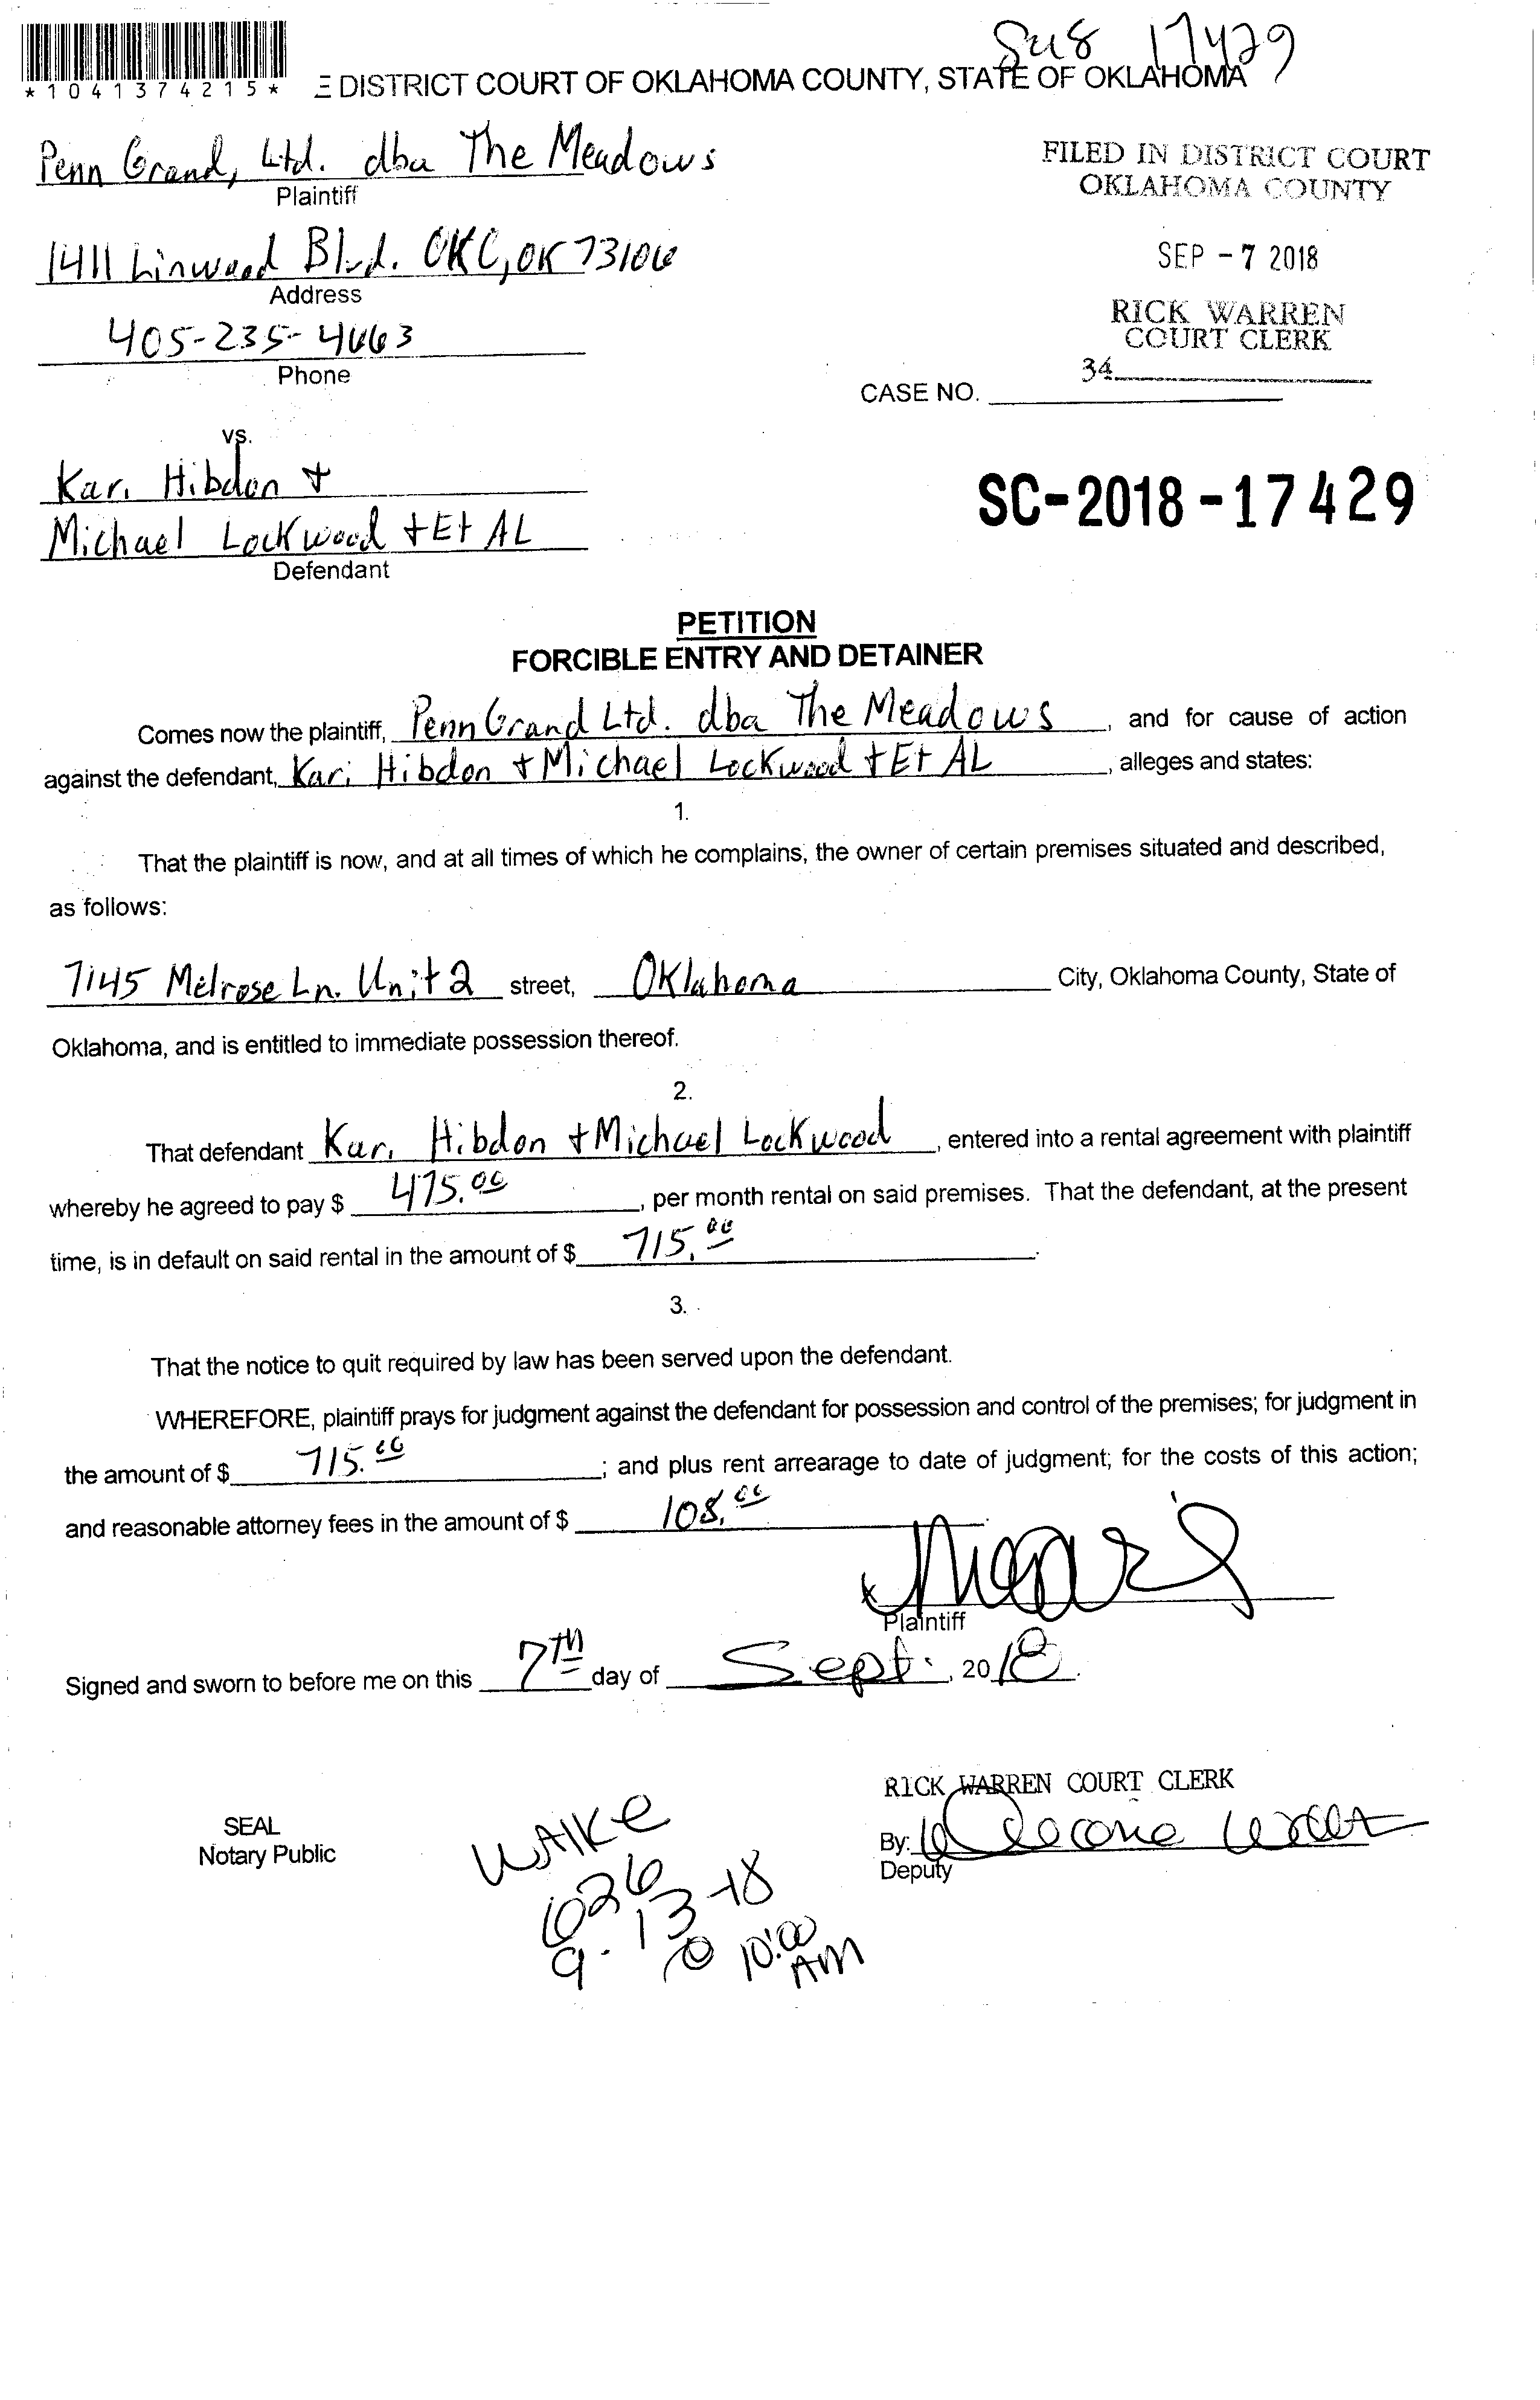 Su8 17429
*1041374215*
E DISTRICT COURT OF OKLAHOMA COUNTY, STATE OF OKLAHOMA
Penn Grand, Ltd. dba The Meadows
Plaintiff
FILED IN DISTRICT COURT
OKLAHOMA COUNTY
1411 Linwood Blvd. OKC, OK 73106
Address
SEP - 7 2018
RICK WARREN
COURT CLERK
405-235-4663
Phone
34
CASE NO.
vs.
Kari Hibdon +
Michael Lockwood + Et AL
Defendant
SC-2018-17429
PETITION
FORCIBLE ENTRY AND DETAINER
Comes now the plaintiff, Penn Grand Ltd. dba The Meadows, and for cause of action
against the defendant, Kari Hibdon + Michael Lockwood + Et AL, alleges and states:
1.
That the plaintiff is now, and at all times of which he complains, the owner of certain premises situated and described,
as follows:
7145 Melrose Ln. Unit 2 street, Oklahoma City, Oklahoma County, State of
Oklahoma, and is entitled to immediate possession thereof.
2.
That defendant Kari Hibdon + Michael Lockwood, entered into a rental agreement with plaintiff
whereby he agreed to pay $ 475.00, per month rental on said premises. That the defendant, at the present
time, is in default on said rental in the amount of $ 715.00.
3.
That the notice to quit required by law has been served upon the defendant.
WHEREFORE, plaintiff prays for judgment against the defendant for possession and control of the premises; for judgment in
the amount of $ 715.00; and plus rent arrearage to date of judgment; for the costs of this action;
and reasonable attorney fees in the amount of $ 108.00.
x
Plaintiff
Signed and sworn to before me on this 7TH day of Sept., 2018.
RICK WARREN COURT CLERK
SEAL
Notary Public
By:
Deputy
WAIKE
1026
9-13-18
@ 10:00
AM